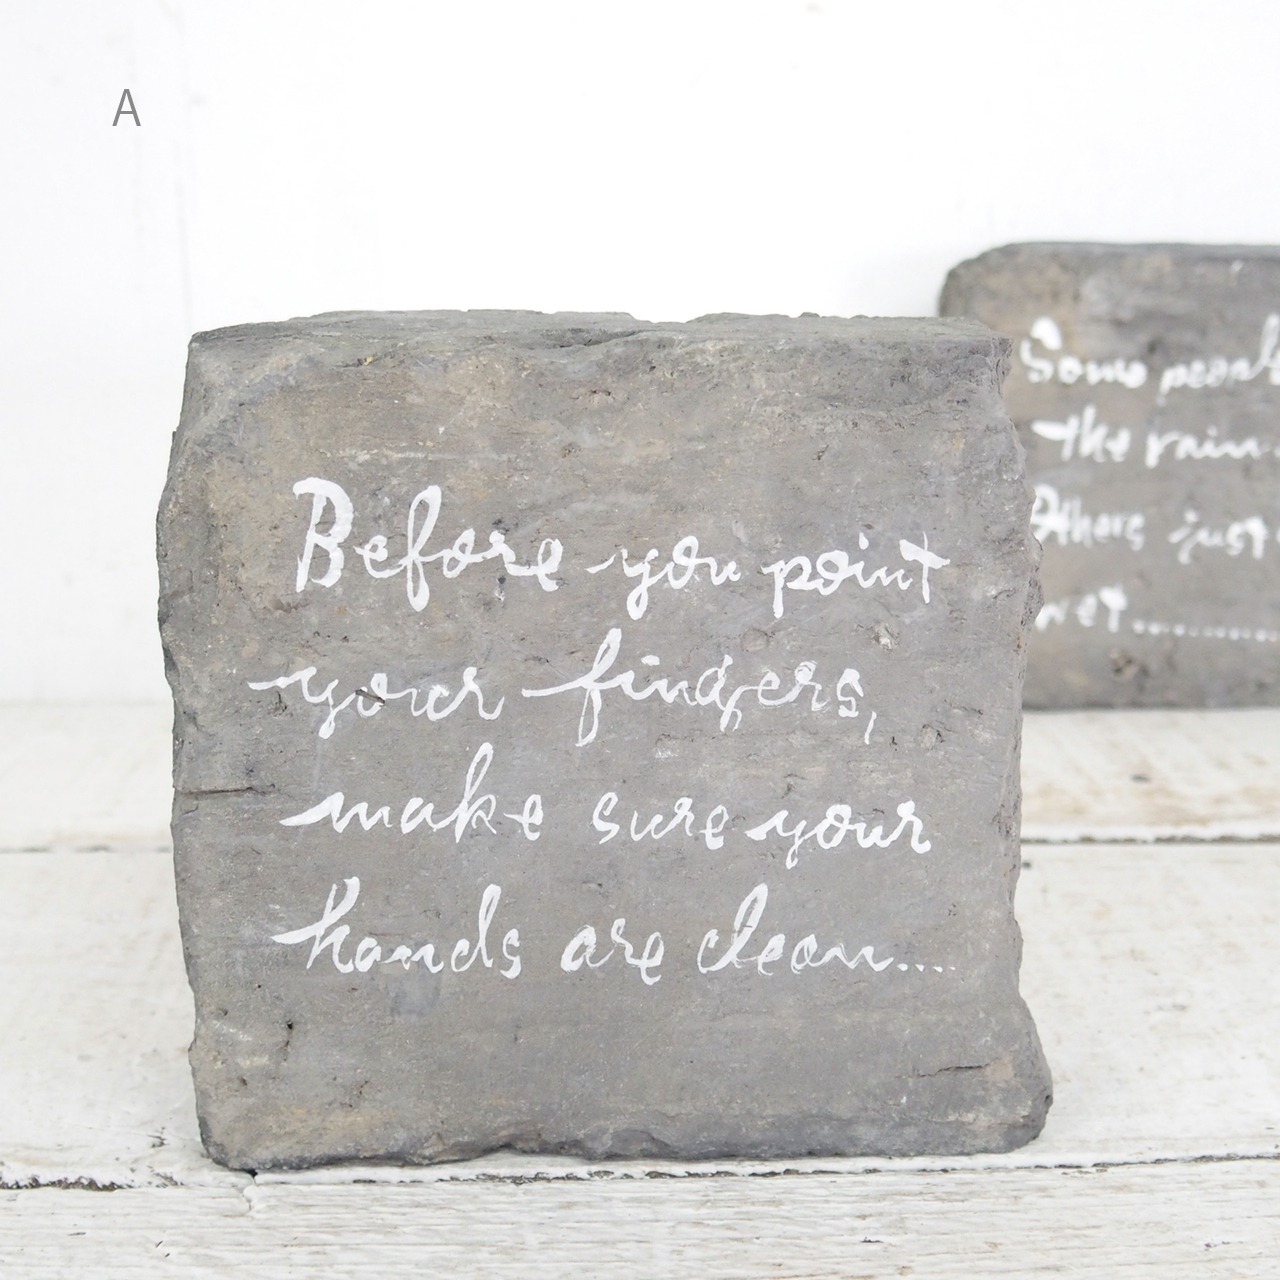 A
Before you point
your fingers,
make sure your
hands are clean....
Some people
the rain.
Others just
wet............